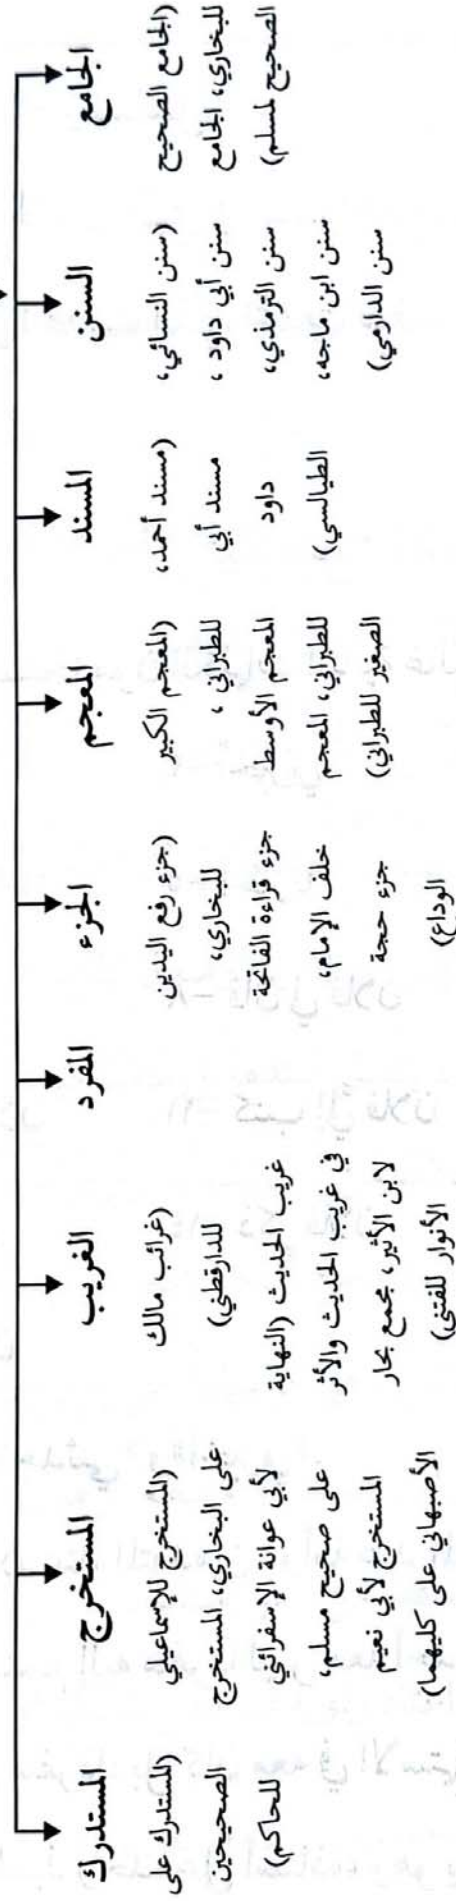 الجامع
(الجامع الصحيح
للبخاري، الجامع
الصحيح لمسلم)
السنن
(سنن النسائي،
سنن أبي داود،
سنن الترمذي،
سنن ابن ماجه،
سنن الدارمي)
المسند
(مسند أحمد،
مسند أبي
داود
الطيالسي)
المعجم
(المعجم الكبير
للطبراني،
المعجم الأوسط
للطبراني، المعجم
الصغير للطبراني)
الجزء
(جزء رفع اليدين
للبخاري،
جزء قراءة الفاتحة
خلف الإمام،
جزء حجة
الوداع)
المفرد
الغريب
(غرائب مالك
للدارقطني)
غريب الحديث (النهاية
في غريب الحديث والأثر
لابن الأثير، مجمع بحار
الأنوار للفتني)
المستخرج
(المستخرج للإسماعيلي
على البخاري، المستخرج
لأبي عوانة الإسفرائني
على صحيح مسلم،
المستخرج لأبي نعيم
الأصبهاني على كليهما)
المستدرك
(المستدرك على
الصحيحين
للحاكم)